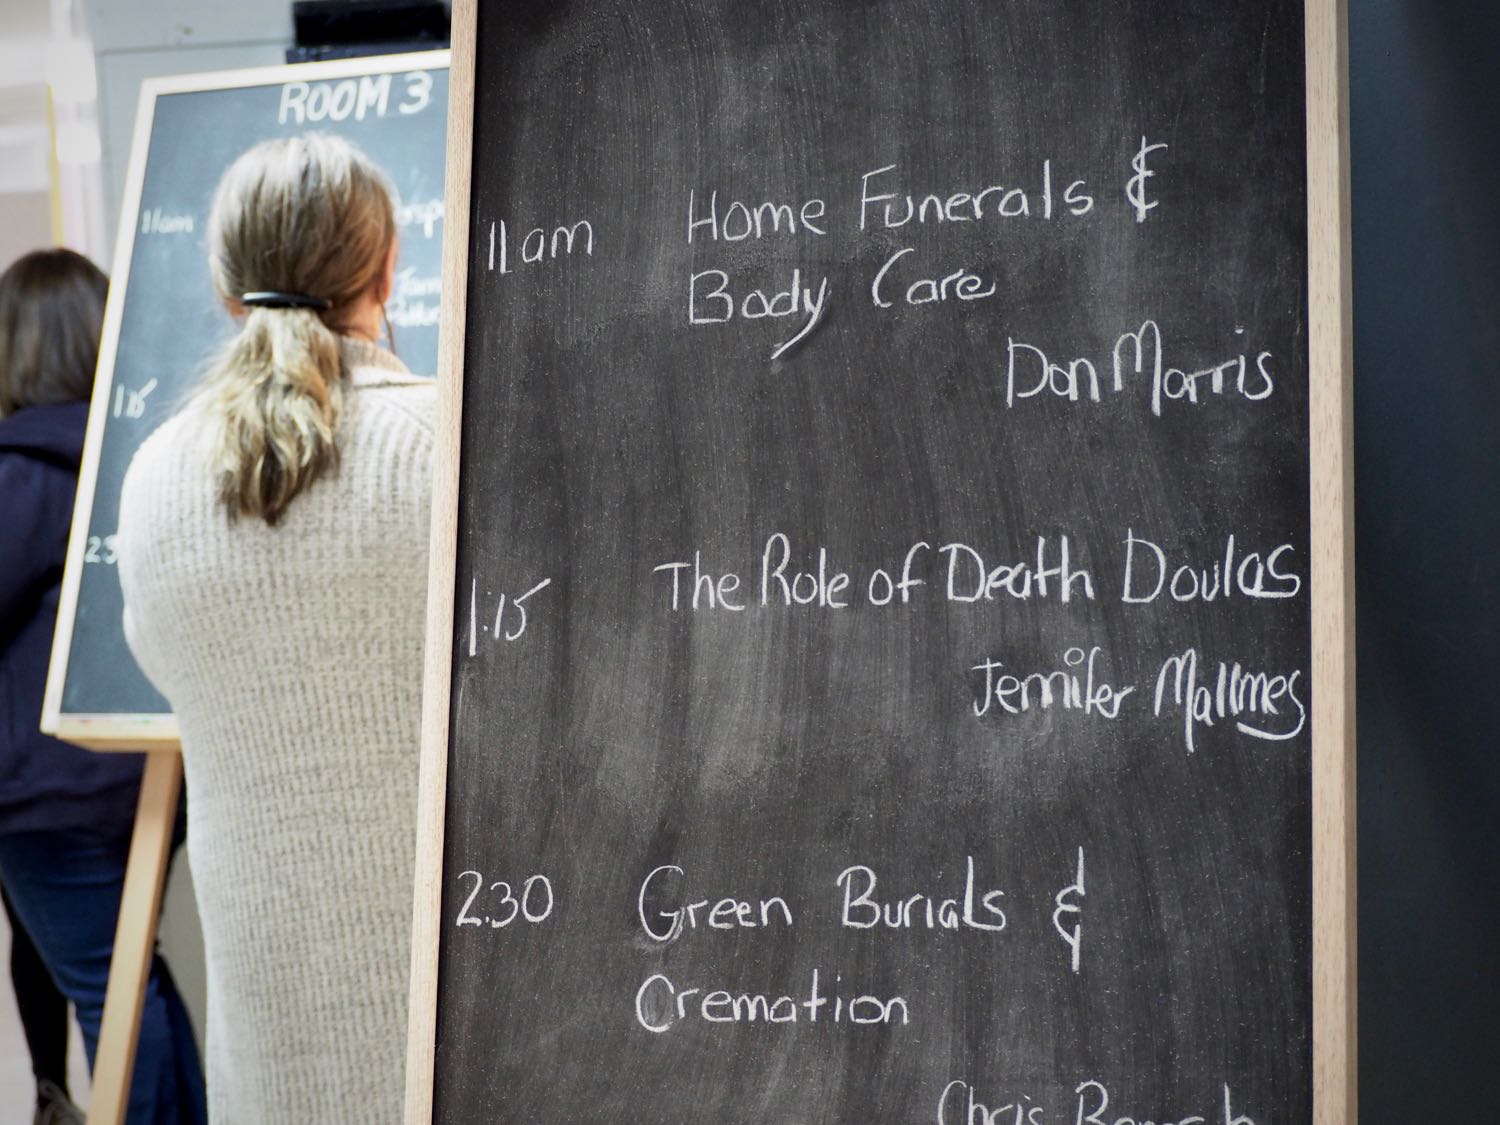 ROOM 3
11am
1:15
11am Home Funerals &
Body Care
Don Morris
1:15 The Role of Death Doulas
Jennifer Mallmes
2.30 Green Burials &
Cremation
Chris